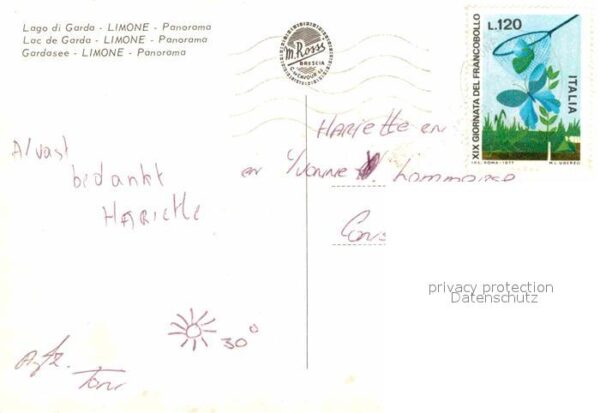 Lago di Garda - LIMONE - Panorama
Lac de Garda - LIMONE - Panorama
Gardasee - LIMONE - Panorama
m. Rossi
BRESCIA
L.120
ITALIA
XIX GIORNATA DEL FRANCOBOLLO
I.P.S. - ROMA - 1977
Alvast
bedankt
HARIETTE
HARIETTE en
en Yvonne
privacy protection
Datenschutz
30°
Afz.